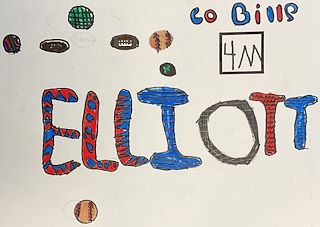 GO Bills
4M
ELLIOTT